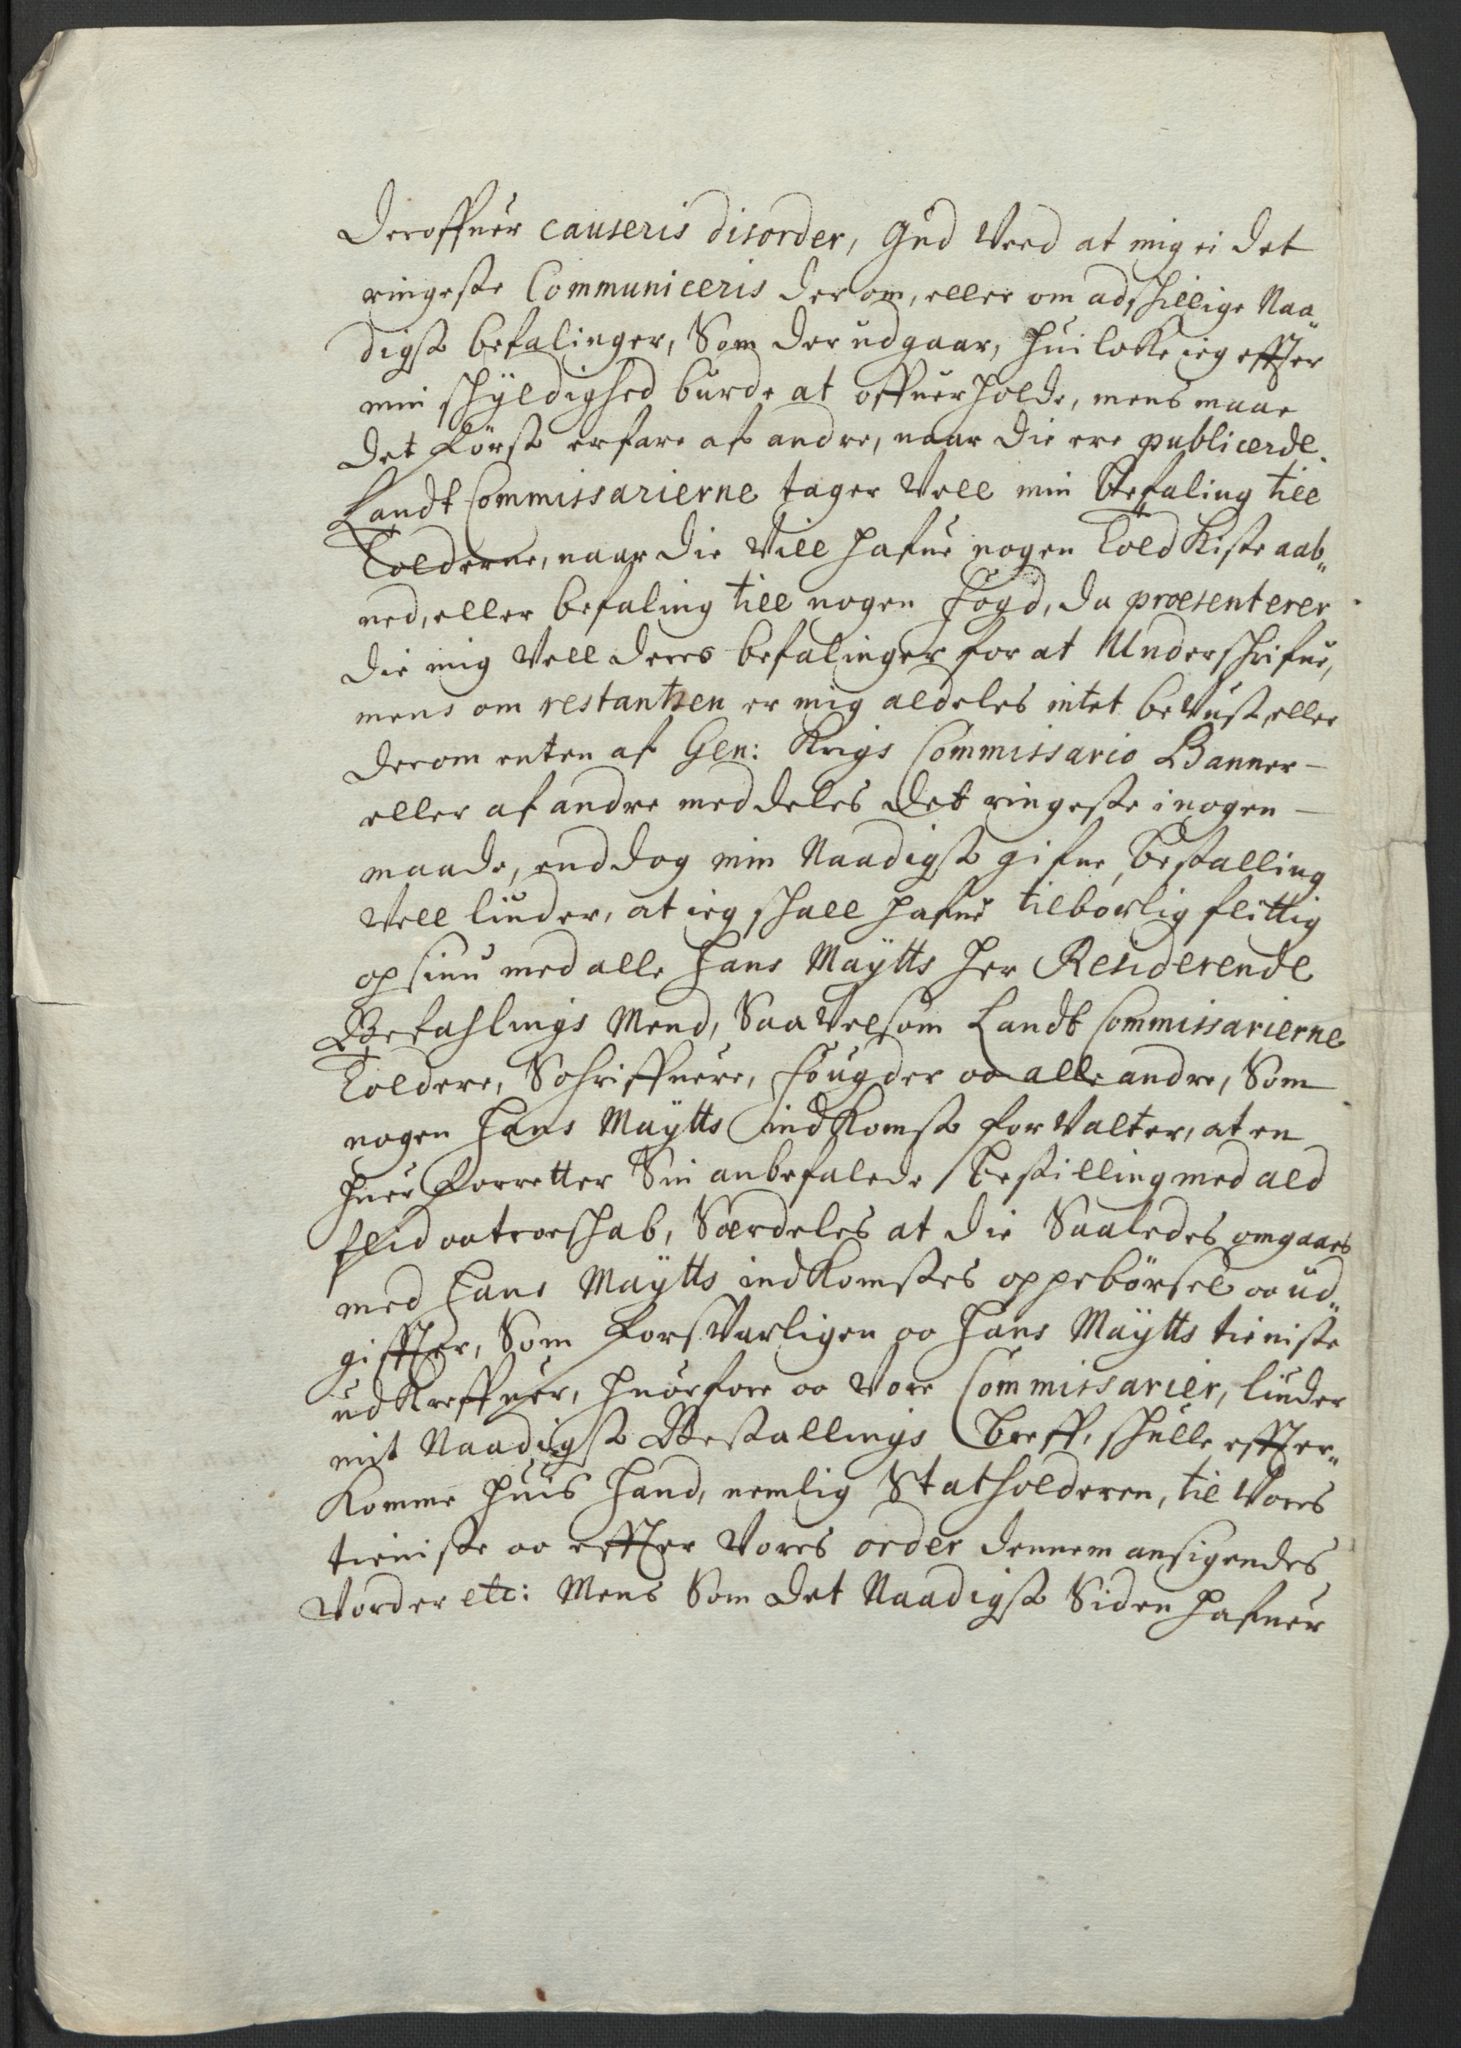 deroffuer causeris disorder, Gud veed at mig ei det
ringeste Communiceris derom, eller om adschillige Naa¬
digst befalinger, Som der udgaar, huilcke ieg effter
min schÿldighed burde at offuerholde, mens maae
det först erfare af andre, naar die ere publicerde.
Landt Commissarierne tager vell min Befaling till
Tolderne, naar die vill hafue nogen Told Kiste aab¬
ned, eller befaling till nogen fogd, da præsenterer
die mig vell deres befalinger for at Underschrifue,
mens om restantzen er mig aldeles intet bevust, eller
derom enten af Gen: Krigs Commissario Banner
eller af andre meddeles det ringeste i nogen
maade, enddog min Naadigst gifne Bestalling
vell liuder, at ieg schall hafue tilbörlig flittig
opsiun med alle Hans Maÿtts her Residerende
Befahlings Mend, Saavelsom Landt Commissarierne
Toldere, Schriffuere, fougder oc alle andre, Som
nogen Hans Maÿtts indkomst forvalter, at en
huer forretter Sin anbefalede Bestilling med ald
flid oc troeschab, Særdeles at die Saaledes omgaaes
med Hans Maÿtts indkomstes oppebörsel oc ud¬
giffter, Som forsvarligen oc Hans Maÿtts tieniste
udkreffuer, huorfore oc vore Commissarier, liuder
mit Naadigst Bestallings Breff, schulle effter¬
komme huis Hand, nemlig Statholderen, til vores
tieniste oc effter vores order dennem ansigendes
vorder etc: Mens Som det Naadigst Siden hafuer